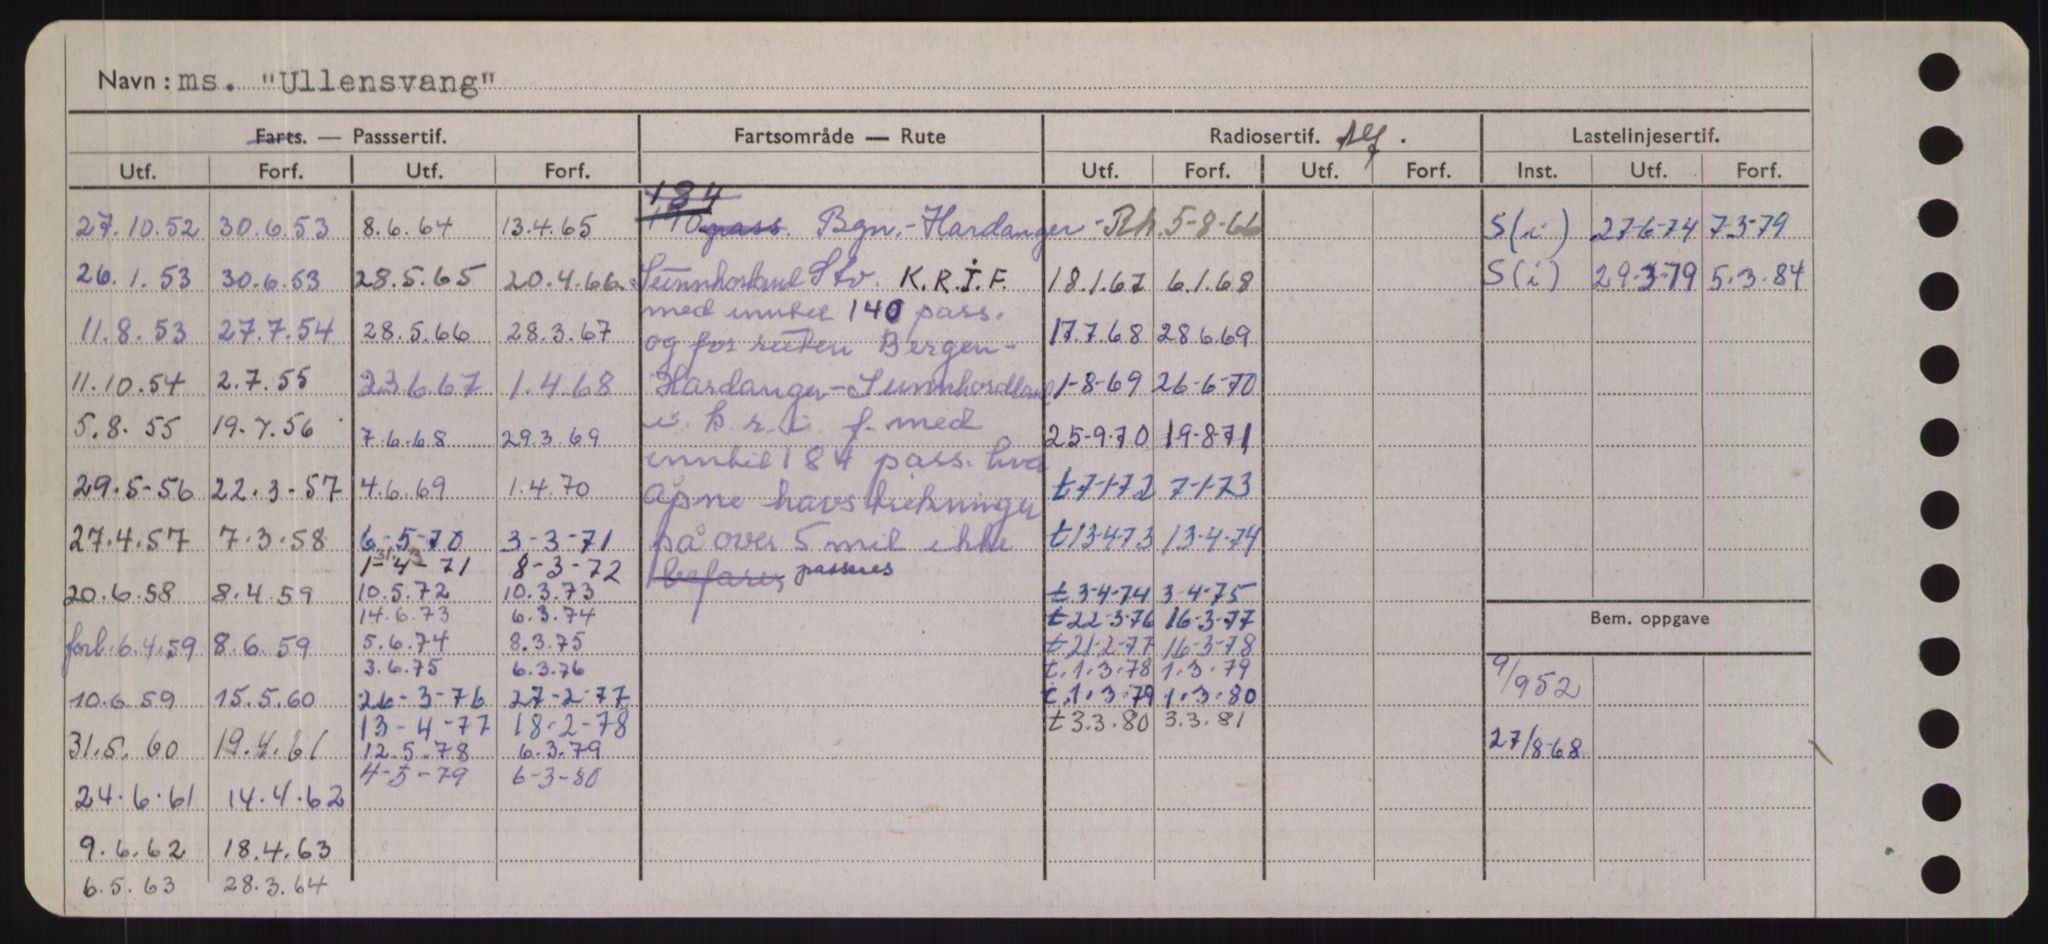 Navn: ms. "Ullensvang"
Farts. — Passsertif. Fartsområde — Rute Radiosertif. Lastelinjesertif.
Utf. Forf. Utf. Forf. Utf. Forf. Utf. Forf. Inst. Utf. Forf.
184
27.10.52 30.6.53 8.6.64 13.4.65 170 pass. Bgn.-Hardanger - Rh. 5-8-66 S(i) 27-6-74 7-3-79
26.1.53 30.6.53 28.5.65 20.4.66 Sunnhorland Stv. K.R.I.F. 18.1.67 6.1.68 S(i) 29-3-79 5.3.84
med inntil 140 pass.
11.8.53 27.7.54 28.5.66 28.3.67 og for ruten Bergen- 17.7.68 28669
11.10.54 2.7.55 23.6.67 1.4.68 Hardanger-Sunnhordland 1-8-69 26-6-70
5.8.55 19.7.56 7.6.68 29.3.69 i. k. r. i. f. med 25-9-70 19-8-71
inntil 184 pass. hvor
29.5-56 22.3-57 4.6.69 1.4.70 åpne havstrekninger t7-1-72 7-1-73
27.4.57 7.3.58 6-5-70 3-3-71 på over 5 mil ikke t13-4-73 13-4-74
1-4-71 8-3-72 befares passeres
20.6.58 8.4.59 10.5.72 10.3.73 t 3-4-74 3-4-75
14.6.73 6.3.74 t 22-3-76 16-3-77
Bem. oppgave
forl. 6.4.59 8.6.59 5.6.74 8.3.75 t 21-2-77 16-3-78
3.6.75 6.3.76 t.1.3.78 1.3.79
9/952
10.6.59 15.5.60 26-3-76 27-2-77 t.1.3.79 1.3.80
13-4-77 18-2-78 t 3.3.80 3.3.81
31.5.60 19.4.61 12.5.78 6.3.79 27/8-68
4-5-79 6-3-80
24.6.61 14.4.62
9.6.62 18.4.63
6.5.63 28.3.64